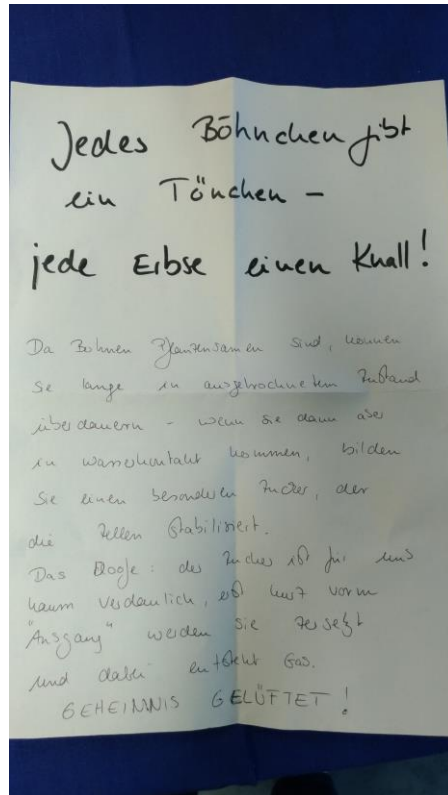 Jedes Böhnchen gibt
ein Tönchen –
jede Erbse einen Knall!
Da Bohnen Pflanzensamen sind, können
sie lange in ausgetrocknetem Zustand
überdauern – wenn sie dann aber
in wasserkontakt kommen, bilden
sie einen besonderen Zucker, der
die Zellen stabilisiert.
Das Doofe: der Zucker ist für uns
kaum verdaulich, erst kurz vorm
"Ausgang" werden sie zersetzt
und dabei entsteht Gas.
GEHEIMNIS GELÜFTET!